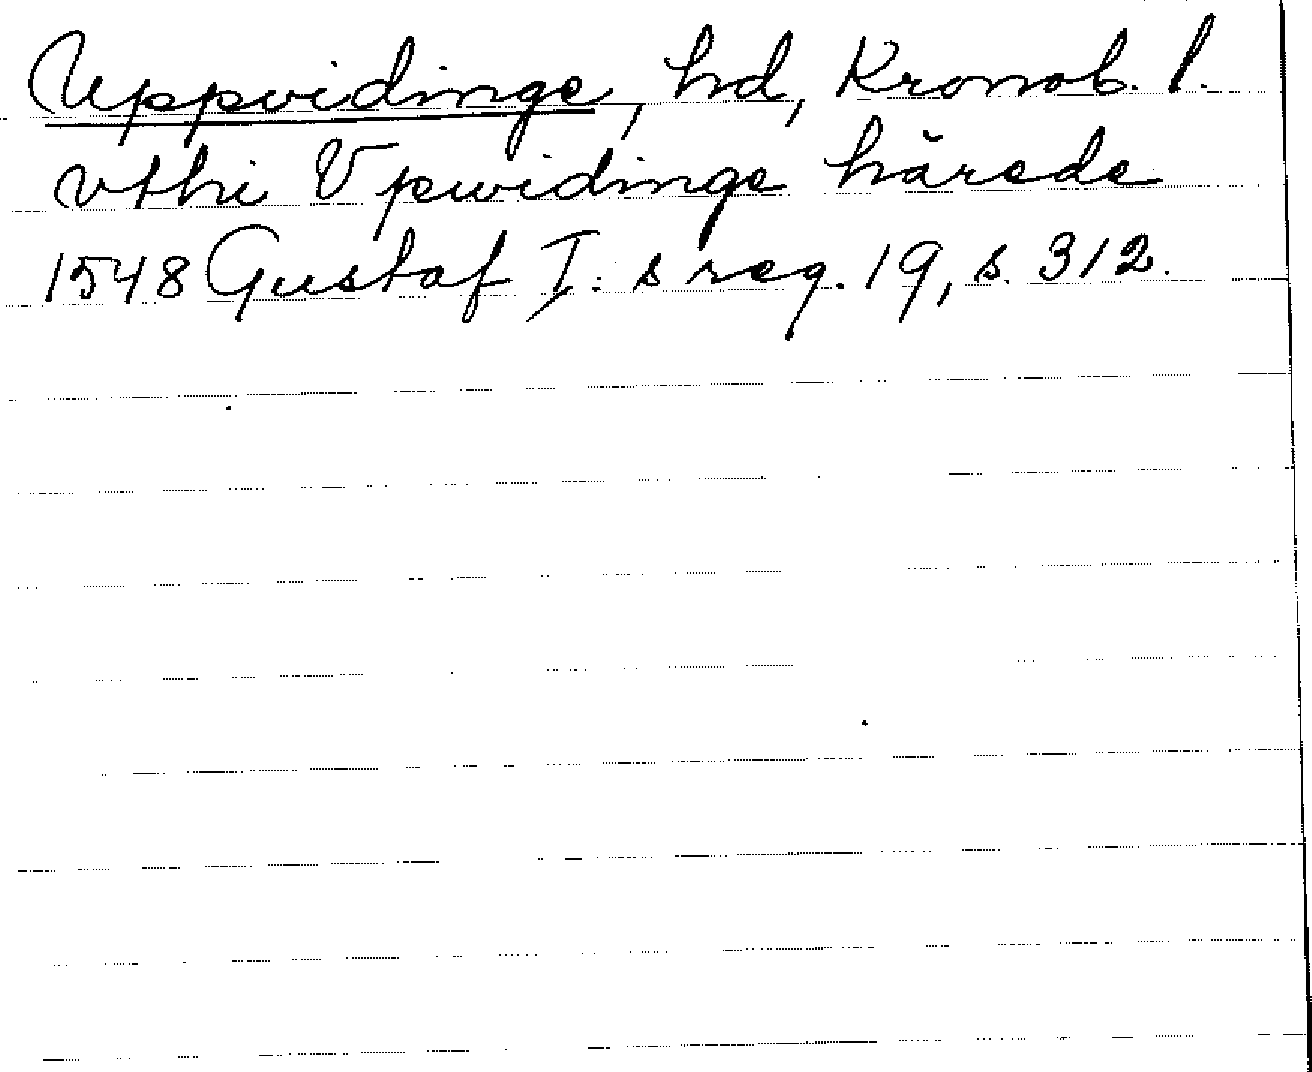 Uppvidinge, hd, Kronob. l.
vthi Vpwidinge härede
1548 Gustaf I:s reg. 19, s. 312.